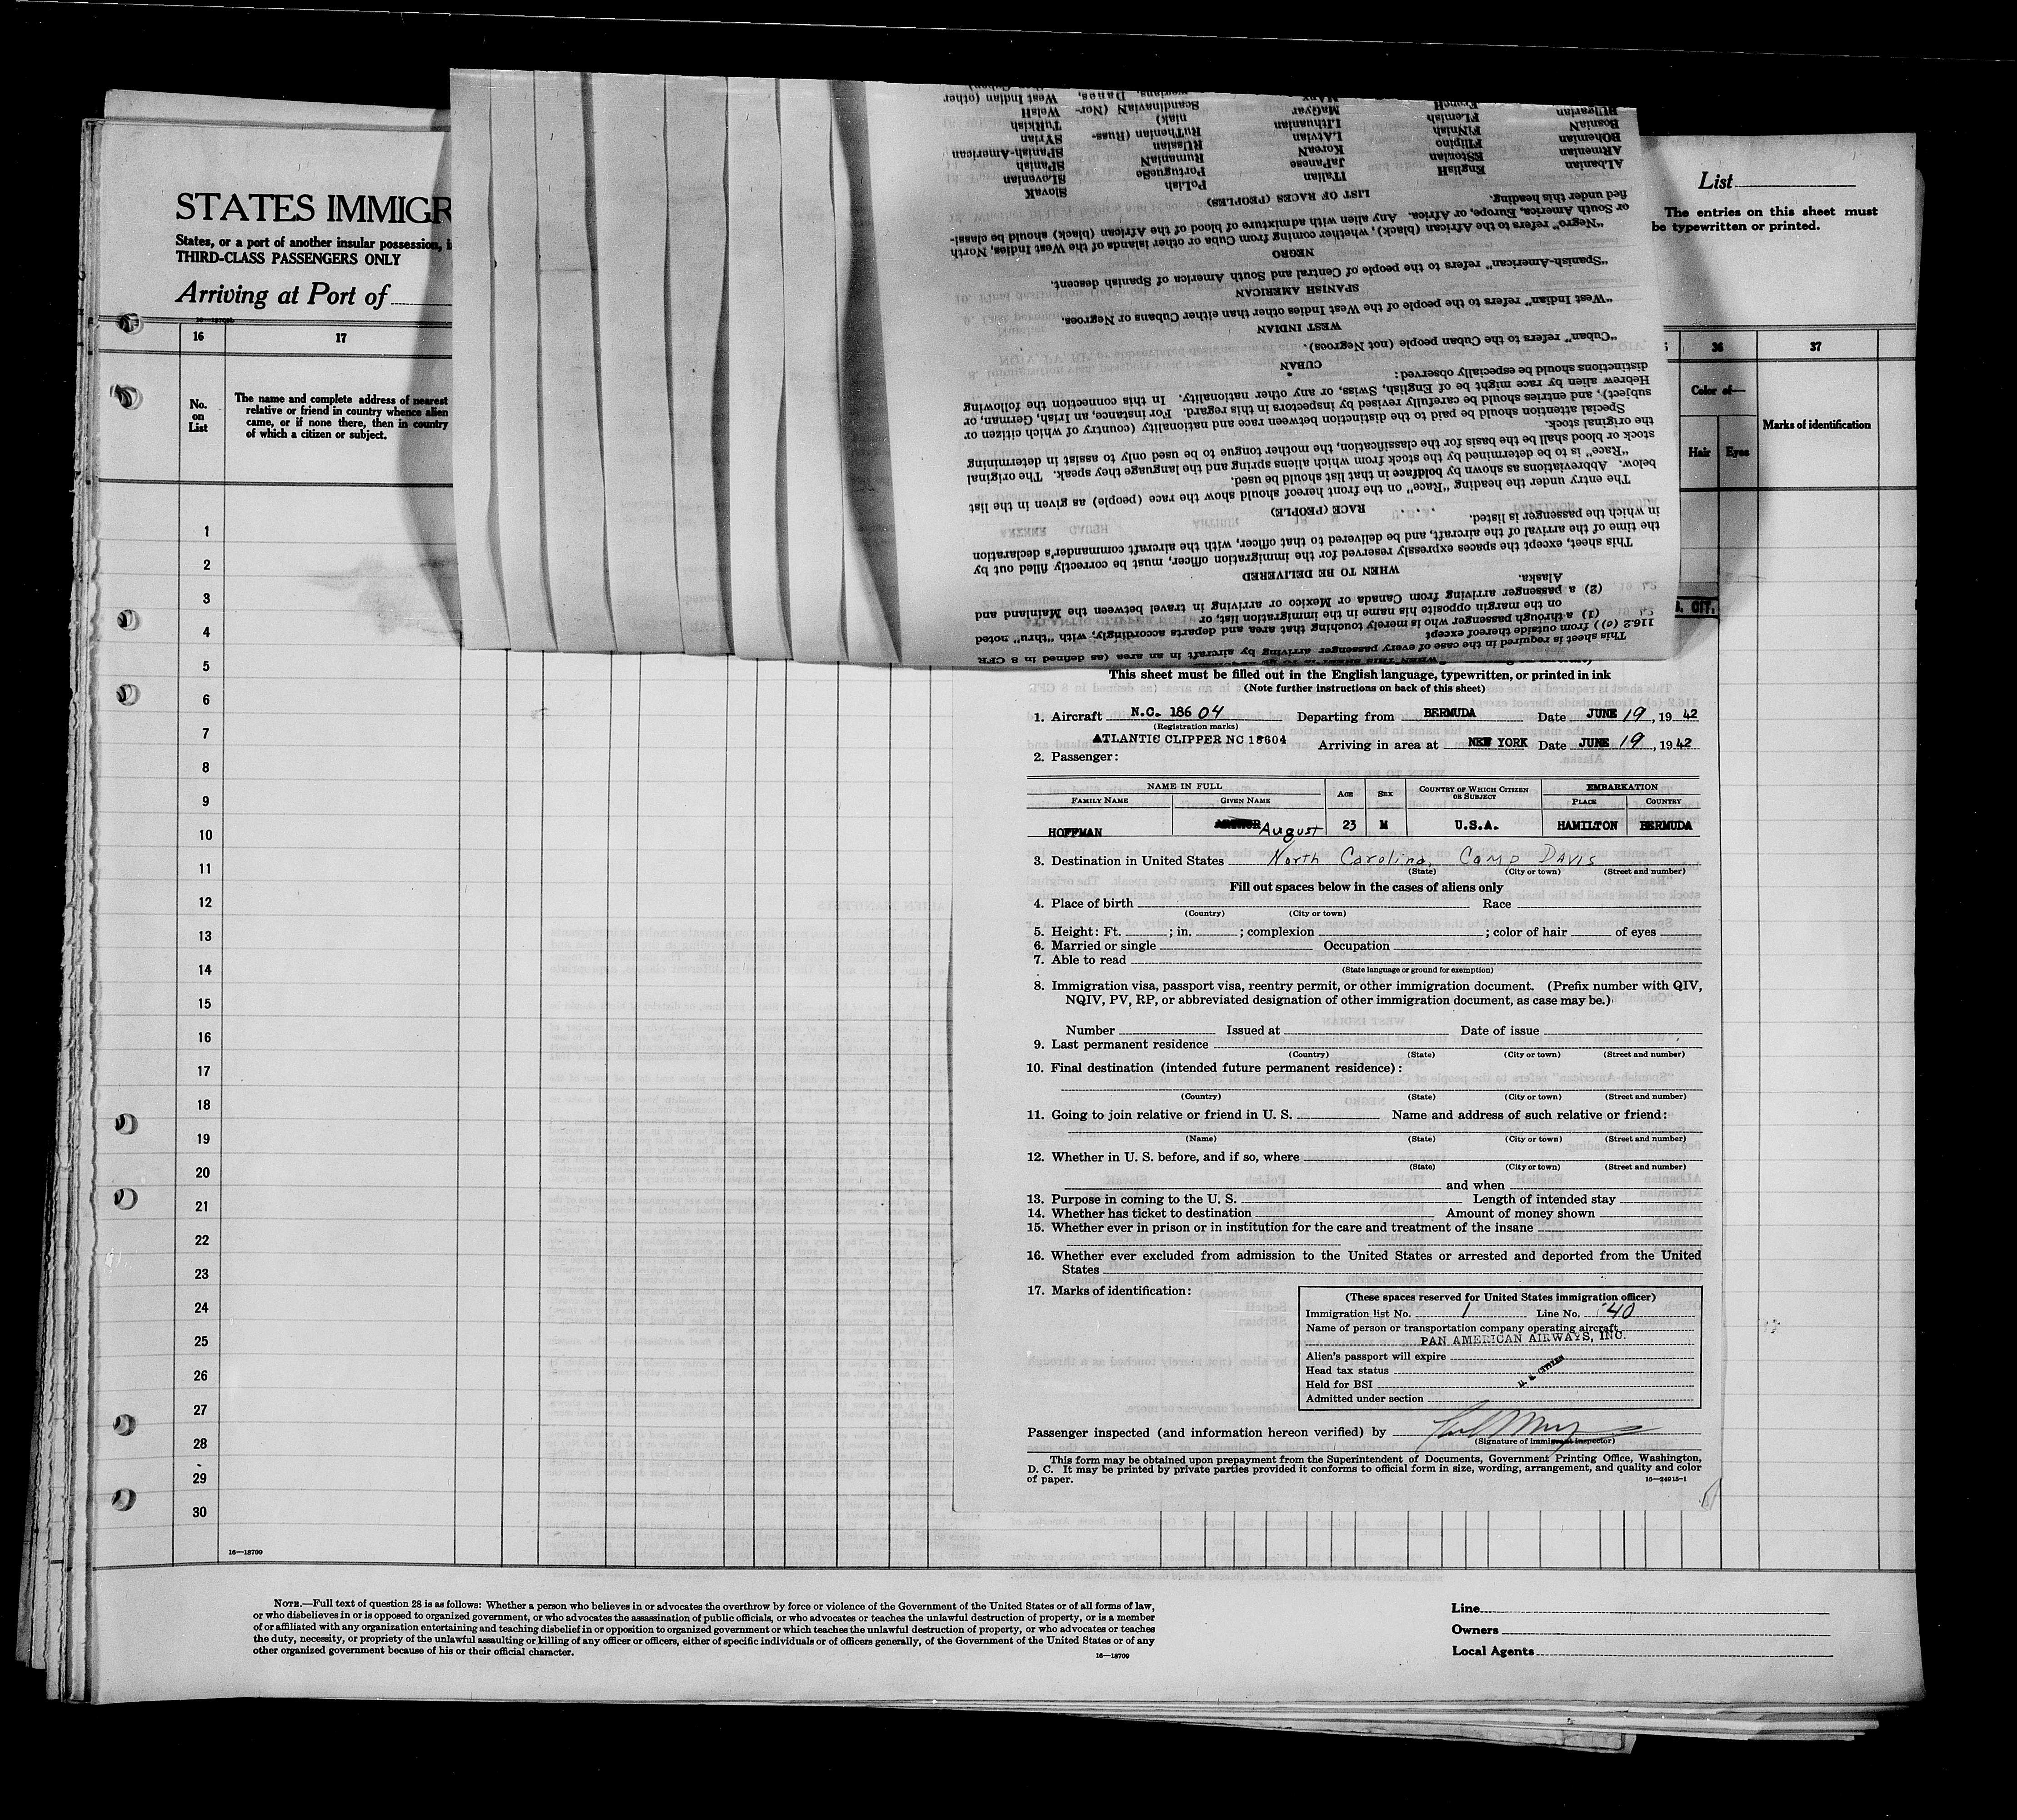 STATES IMMIGR
States, or a port of another insular possession, i
THIRD-CLASS PASSENGERS ONLY
Arriving at Port of
16 17
No. on List
The name and complete address of nearest
relative or friend in country whence alien
came, or if none there, then in country
of which a citizen or subject.
1
2
3
4
5
6
7
8
9
10
11
12
13
14
15
16
17
18
19
20
21
22
23
24
25
26
27
28
29
30
16—18709
List
The entries on this sheet must
be typewritten or printed.
36 37
Color of—
Marks of identification
Hair Eyes
This sheet is required in the case of every passenger arriving by aircraft in an area (as defined in 8 CFR
116.2 (c)) from outside thereof except
(1) a through passenger who is merely touching that area and departs accordingly, with "thru" noted
on the margin opposite his name in the immigration list, or
(2) a passenger arriving from Canada or Mexico or arriving in travel between the Mainland and
Alaska.
WHEN TO BE DELIVERED
This sheet, except the spaces expressly reserved for the immigration officer, must be correctly filled out by
the time of the arrival of the aircraft, and be delivered to that officer, with the aircraft commander's declaration
in which the passenger is listed.
RACE (PEOPLE)
The entry under the heading "Race" on the front hereof should show the race (people) as given in the list
below. Abbreviations as shown by boldface in that list should be used.
"Race" is to be determined by the stock from which aliens spring and the language they speak. The original
stock or blood shall be the basis for the classification, the mother tongue to be used only to assist in determining
the original stock.
Special attention should be paid to the distinction between race and nationality (country of which citizen or
subject), and entries should be carefully revised by inspectors in this regard. For instance, an Irish, German, or
Hebrew alien by race might be of English, Swiss, or any other nationality. In this connection the following
distinctions should be especially observed:
CUBAN
"Cuban" refers to the Cuban people (not Negroes).
WEST INDIAN
"West Indian" refers to the people of the West Indies other than either Cubans or Negroes.
SPANISH AMERICAN
"Spanish-American" refers to the people of Central and South America of Spanish descent.
NEGRO
"Negro" refers to the African (black), whether coming from Cuba or other islands of the West Indies, North
or South America, Europe, or Africa. Any alien with admixture of blood of the African (black) should be classi-
fied under this heading.
LIST OF RACES (PEOPLES)
ALbanian EnglisH ITalian PoLish SlovaK
ARmenian EStonian JaPanese PortugueSe SLovenian
BOhemian FIlipino KoreaN RumaniaN SPanish
BosniaN FINnish LAtvian RUssian SPanish-American
BUlgarian FLemish LIthuanian RuThenian (Russ- SYrian
FrencH MaGyar niak) TuRkish
Scandinavian (Nor- WelsH
wegians, Danes, West Indian (other
This sheet must be filled out in the English language, typewritten, or printed in ink
(Note further instructions on back of this sheet)
1. Aircraft N.C. 18604 Departing from BERMUDA Date JUNE 19, 1942
(Registration marks)
ATLANTIC CLIPPER NC 18604 Arriving in area at NEW YORK Date JUNE 19, 1942
2. Passenger:
NAME IN FULL AGE SEX COUNTRY OF WHICH CITIZEN OR SUBJECT EMBARKATION
FAMILY NAME GIVEN NAME PLACE COUNTRY
HOFFMAN August 23 M U.S.A. HAMILTON BERMUDA
3. Destination in United States North Carolina, Camp Davis
(State) (City or town) (Street and number)
Fill out spaces below in the cases of aliens only
4. Place of birth Race
(Country) (City or town)
5. Height: Ft. ; in. ; complexion ; color of hair of eyes
6. Married or single Occupation
7. Able to read
(State language or ground for exemption)
8. Immigration visa, passport visa, reentry permit, or other immigration document. (Prefix number with QIV,
NQIV, PV, RP, or abbreviated designation of other immigration document, as case may be.)
Number Issued at Date of issue
9. Last permanent residence
(Country) (State) (City or town) (Street and number)
10. Final destination (intended future permanent residence):
(Country) (State) (City or town) (Street and number)
11. Going to join relative or friend in U. S. Name and address of such relative or friend:
(Name) (State) (City or town) (Street and number)
12. Whether in U. S. before, and if so, where
(State) (City or town) (Street and number)
and when
13. Purpose in coming to the U. S. Length of intended stay
14. Whether has ticket to destination Amount of money shown
15. Whether ever in prison or in institution for the care and treatment of the insane
16. Whether ever excluded from admission to the United States or arrested and deported from the United
States
17. Marks of identification:
(These spaces reserved for United States immigration officer)
Immigration list No. 1 Line No. 40
Name of person or transportation company operating aircraft
PAN AMERICAN AIRWAYS, INC.
Alien's passport will expire
Head tax status
Held for BSI U. S. CITIZEN
Admitted under section
Passenger inspected (and information hereon verified) by
(Signature of immigrant inspector)
This form may be obtained upon prepayment from the Superintendent of Documents, Government Printing Office, Washington,
D. C. It may be printed by private parties provided it conforms to official form in size, wording, arrangement, and quality and color
of paper. 16—24915-1
NOTE.—Full text of question 28 is as follows: Whether a person who believes in or advocates the overthrow by force or violence of the Government of the United States or of all forms of law,
or who disbelieves in or is opposed to organized government, or who advocates the assassination of public officials, or who advocates or teaches the unlawful destruction of property, or is a member
of or affiliated with any organization entertaining and teaching disbelief in or opposition to organized government or which teaches the unlawful destruction of property, or who advocates or teaches
the duty, necessity, or propriety of the unlawful assaulting or killing of any officer or officers, either of specific individuals or of officers generally, of the Government of the United States or of any
other organized government because of his or their official character.
16—18709
Line
Owners
Local Agents